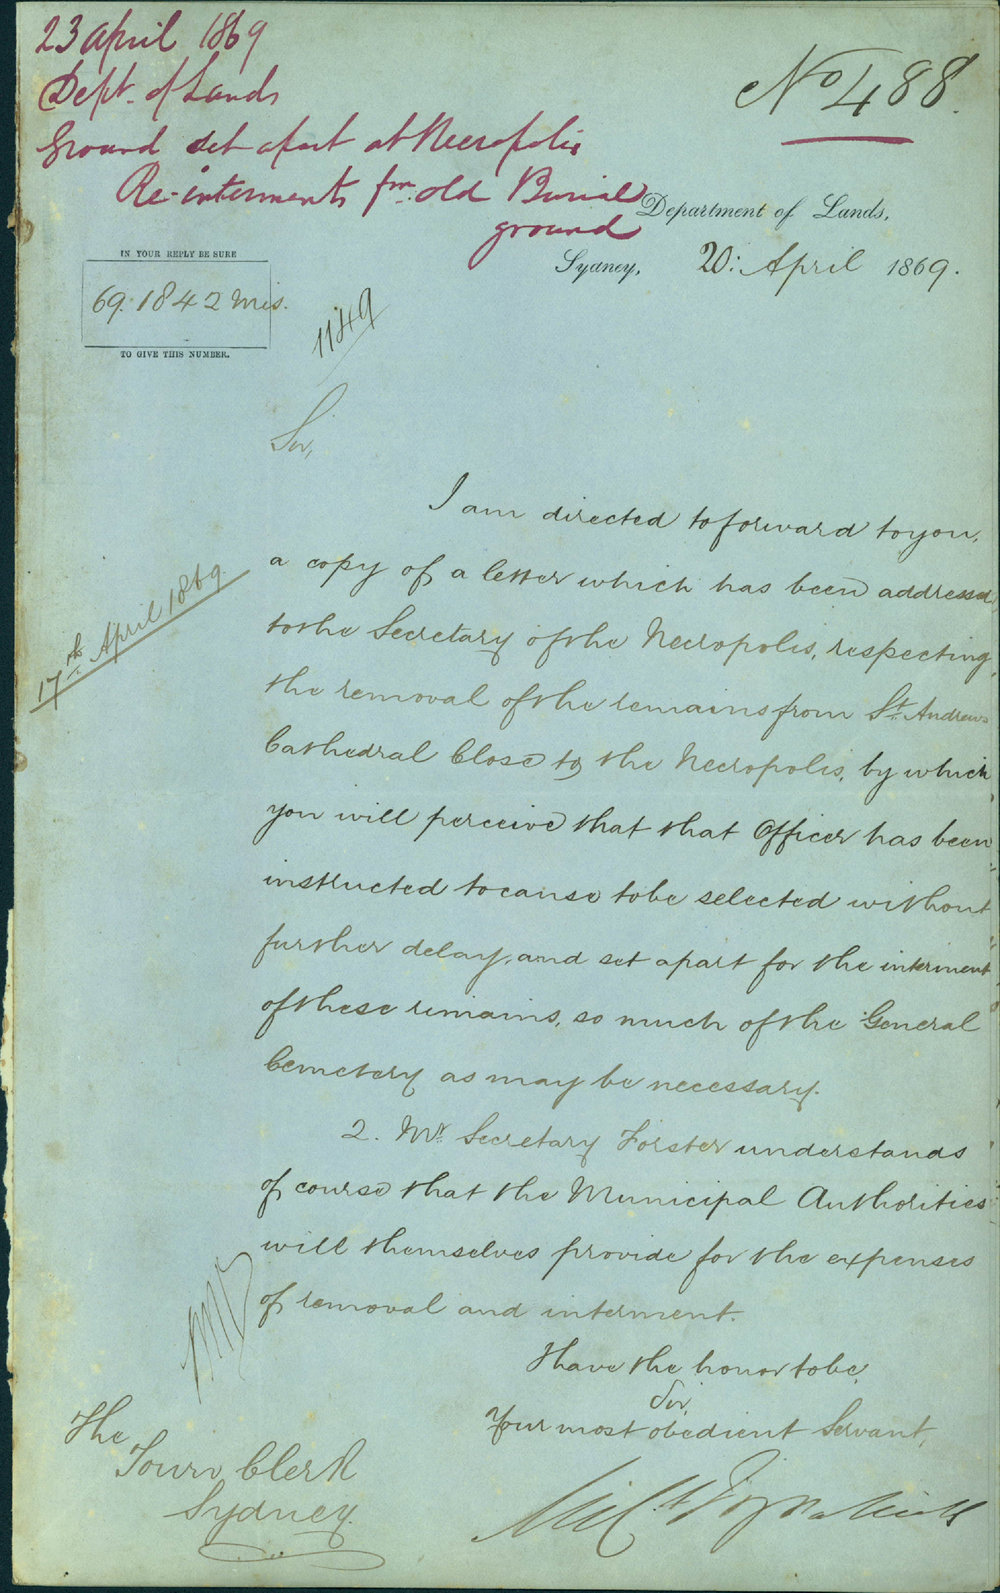 23 April 1869
Dept. of Lands
Ground set apart at Necropolis
Re-interments fm. old Burial
ground
No 488.
Department of Lands,
Sydney, 20: April 1869.
IN YOUR REPLY BE SURE
69.1842 Mis.
TO GIVE THIS NUMBER.
1149
Sir,
I am directed to forward to you,
a copy of a letter which has been addressed
to the Secretary of the Necropolis, respecting
the removal of the remains from St. Andrews
Cathedral Close to the Necropolis, by which
you will perceive that that Officer has been
instructed to cause to be selected without
further delay, and set apart for the interment
of these remains, so much of the General
Cemetery as may be necessary.
17th April 1869.
2. Mr. Secretary Forster understands
of course that the Municipal Authorities
will themselves provide for the expenses
of removal and interment.
I have the honor to be,
Sir,
Your most obedient Servant,
The
Town Clerk
Sydney.